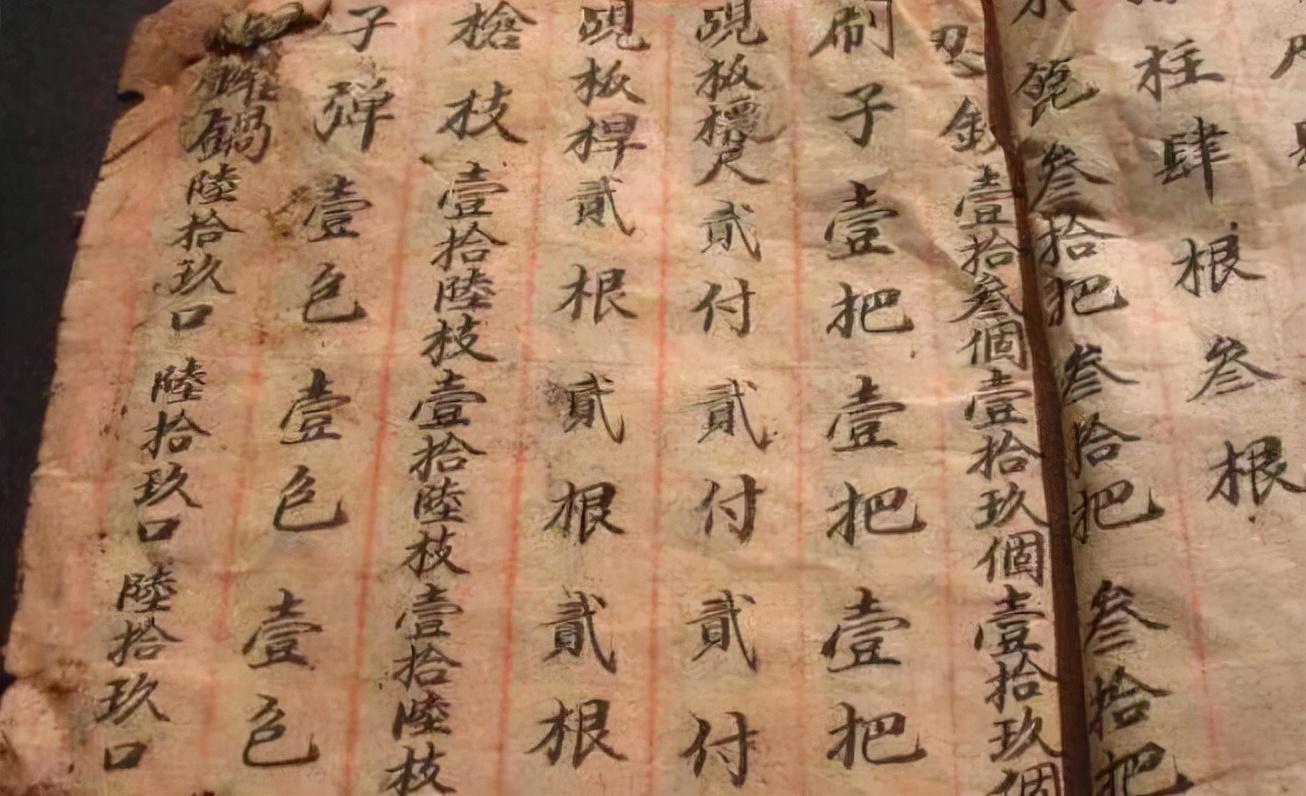 柱肆根叁根
篼叁拾把叁拾把叁拾把
壹拾叁個壹拾玖個壹拾玖個
刷子壹把壹把壹把
板尺貳付貳付貳付
板桿貳根貳根貳根
槍枝壹拾陸枝壹拾陸枝壹拾陸枝
子弹壹色壹色壹色
鍋陸拾玖口陸拾玖口陸拾玖口